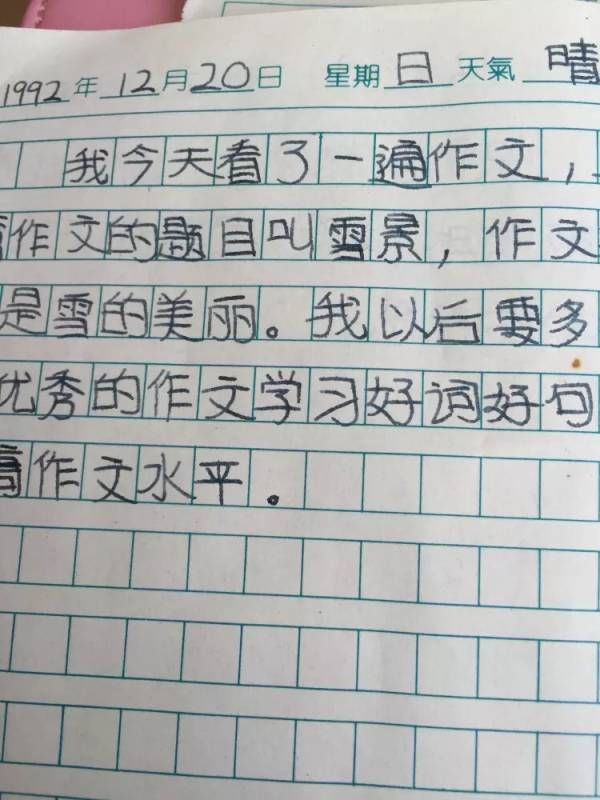 1992年12月20日 星期日 天氣晴
我今天看了一遍作文，
作文的题目叫雪景，作文
是雪的美丽。我以后要多
优秀的作文学习好词好句
高作文水平。